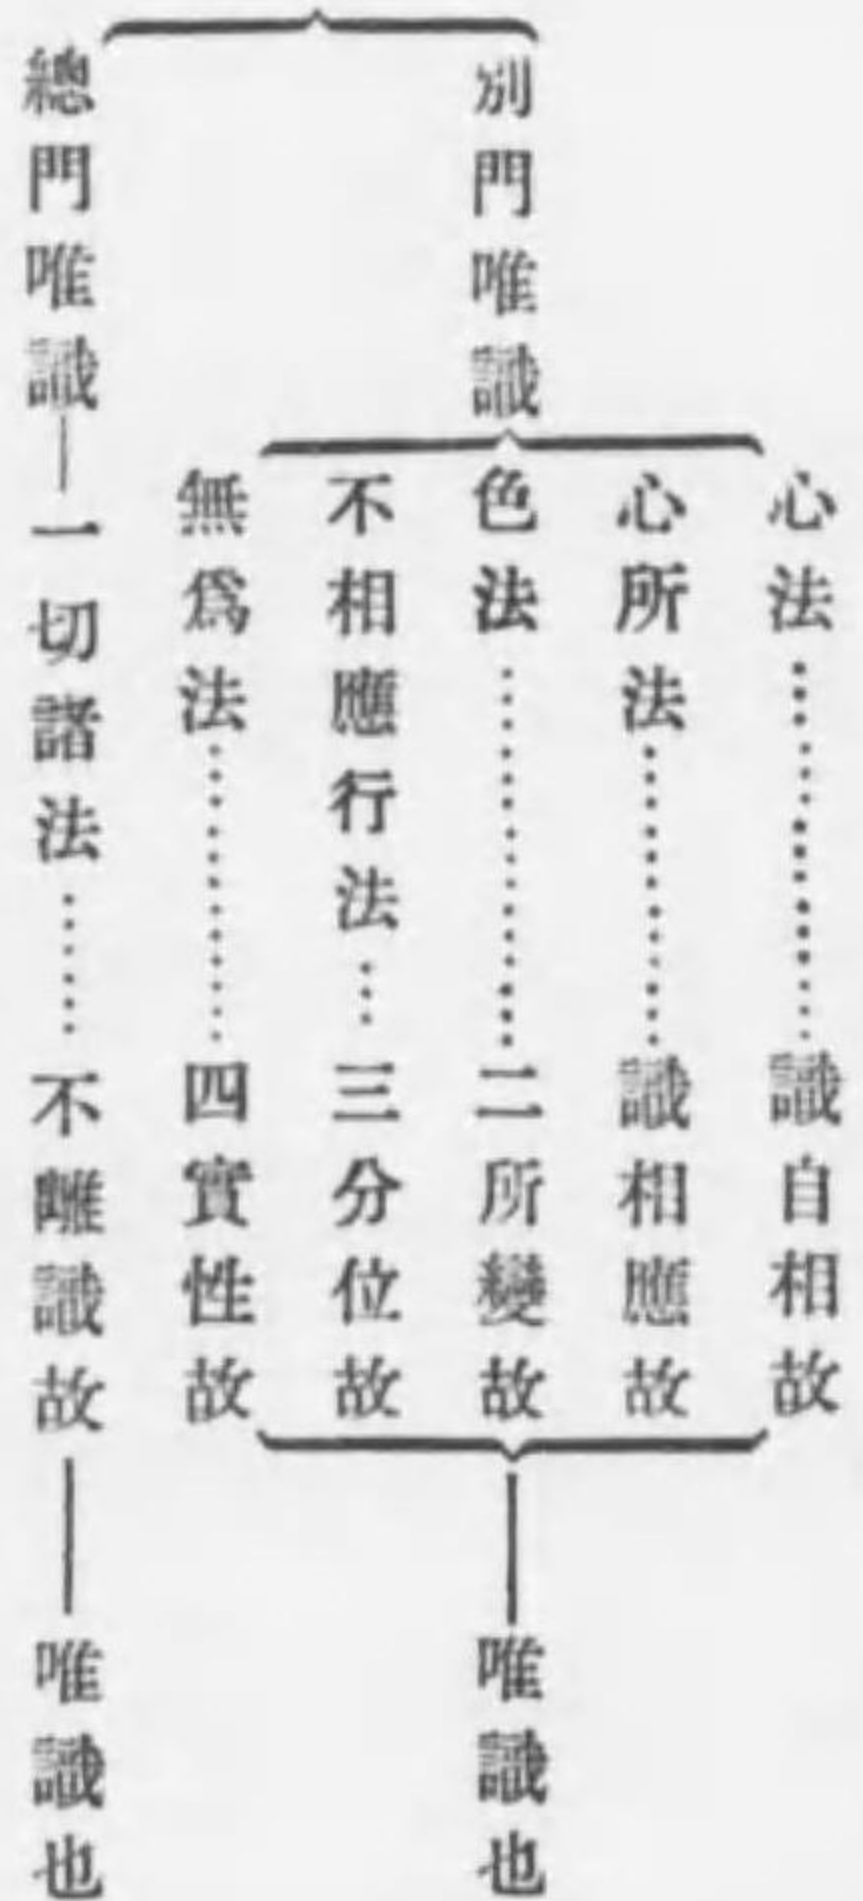 別門唯識
心法………識自相故
心所法………識相應故
色法………二所變故
不相應行法…三分位故
無爲法………四實性故
唯識也
總門唯識―一切諸法……不離識故―唯識也